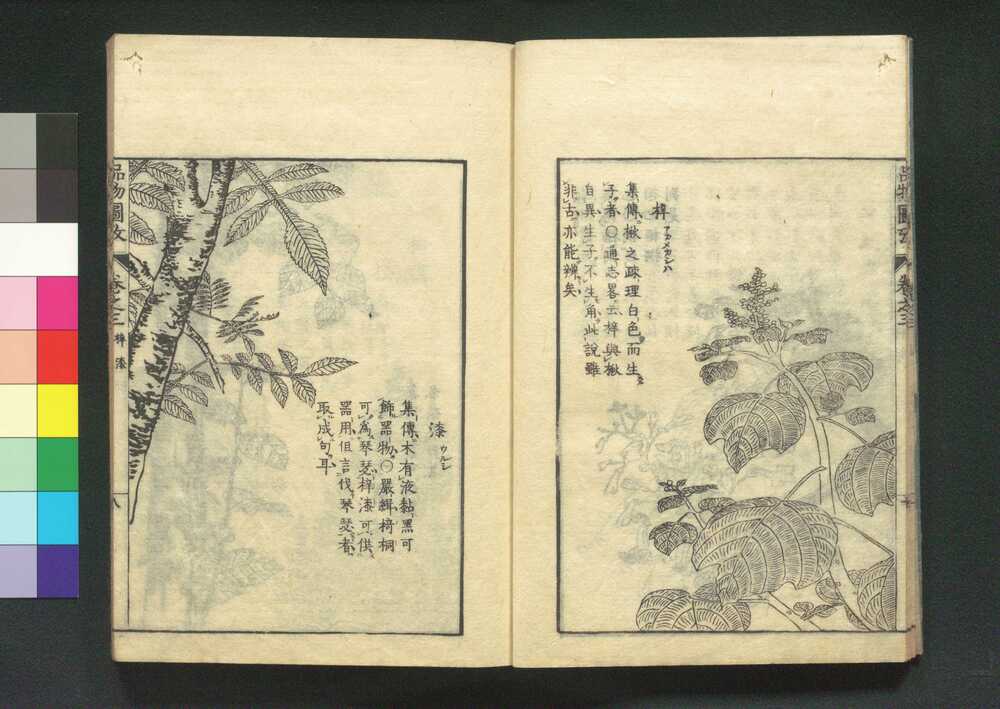 梓
アカメカシハ
集傳楸之疎理白色而生
子者○通志畧云梓與楸
自異生子不生角此說雖
非古亦能辨矣
漆
ウルシ
集傳木有液黏黑可
飾器物○嚴緝椅桐
可為琴瑟梓漆可供
器用但言伐琴瑟者
取成句耳
品物圖攷
卷之三
梓漆
八